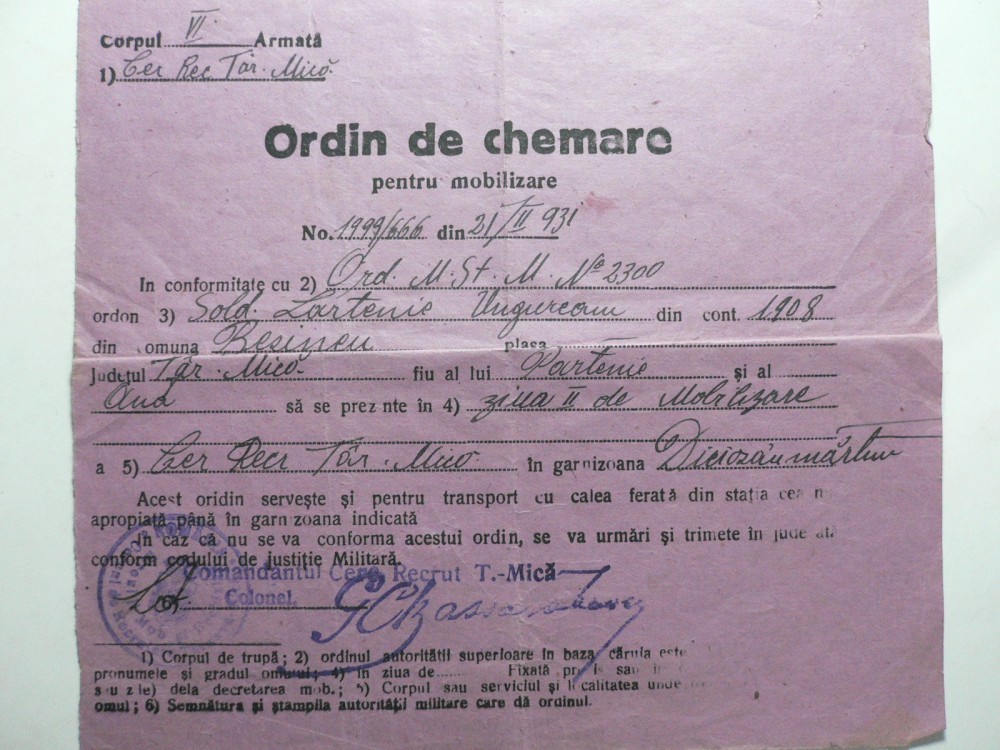 Corpul VI Armată
1) Cer Rec Târ. Mică
Ordin de chemare
pentru mobilizare
No. 1999/666 din 21/II 931
In conformitate cu 2) Ord. M. St. M. No 2300
ordon 3) Sold. Ungurean din cont. 1908
din omuna plasa
Județul Târ. Mică fiu al lui Partenie și al
Ana să se prez nte în 4) ziua II de Mobilizare
a 5) Cer Recr Târ. Mică în garnizoana Diciosânmărtin
Acest oridin servește și pentru transport cu calea ferată din stația cea m
apropiată până în garnizoana indicată
In caz că nu se va conforma acestui ordin, se va urmări și trimete în jude ată
conform codului de justiție Militară.
Comandantul Cerc. Recrut T.-Mică
Colonel.
1) Corpul de trupă; 2) ordinul autorității superioare în baza căruia este
pronumele și gradul omului; 4) în ziua de...... Fixată pr sau
sau zile) dela decretarea mob.; 5) Corpul sau serviciul și localitatea unde
omul; 6) Semnătura și ștampila autorității militare care dă ordinul.